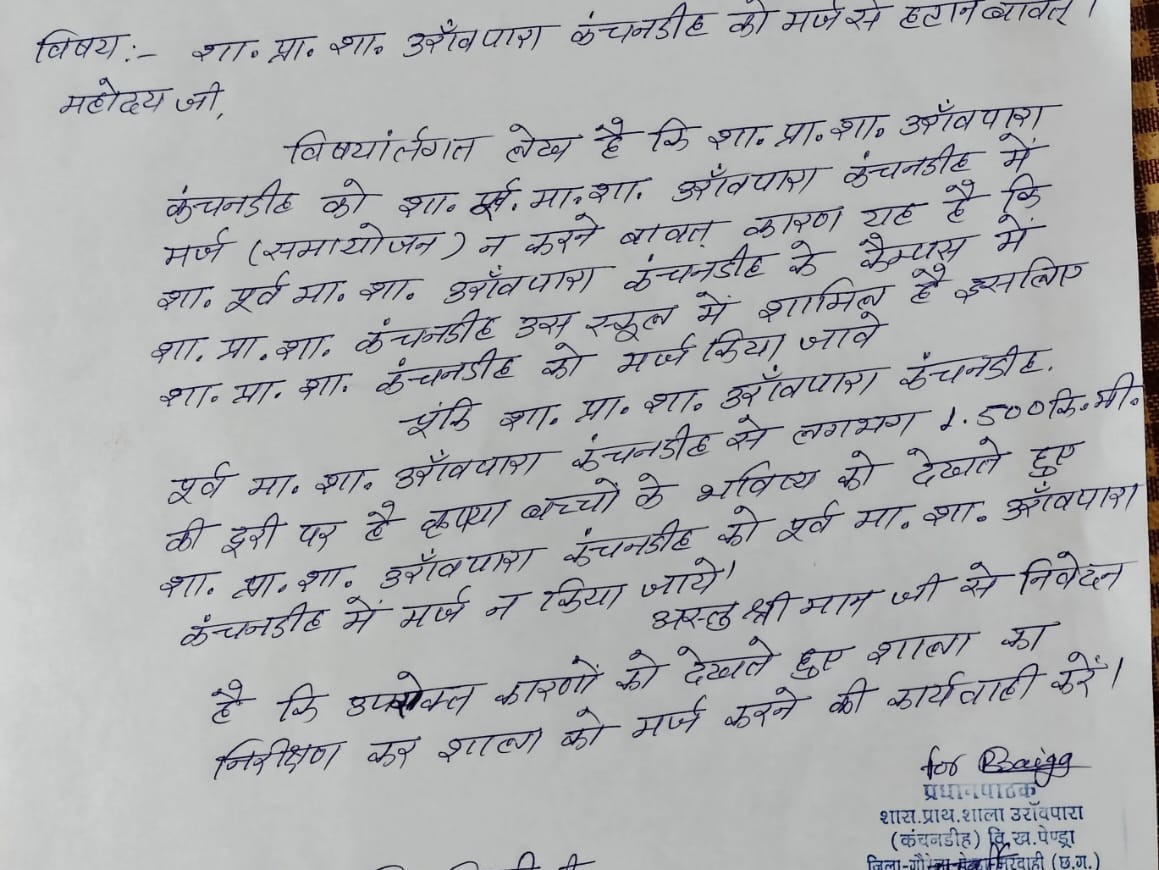 विषय :- शा. प्रा. शा. उराँवपारा कंचनडीह को मर्ज से हटाने बावत् ।
महोदय जी,
विषयांर्तगत लेख है कि शा. प्रा. शा. उराँवपारा
कंचनडीह को शा. पूर्व. मा. शा. उराँवपारा कंचनडीह में
मर्ज (समायोजन) न करने बावत् कारण यह है कि
शा. पूर्व मा. शा. उराँवपारा कंचनडीह के कैम्पस में
शा. प्रा. शा. कंचनडीह उस स्कूल में शामिल है इसलिए
शा. प्रा. शा. कंचनडीह को मर्ज किया जावे
चूंकि शा. प्रा. शा. उराँवपारा कंचनडीह.
पूर्व मा. शा. उराँवपारा कंचनडीह से लगभग 1.500 कि.मी.
की दूरी पर है कृपया बच्चों के भविष्य को देखते हुए
शा. प्रा. शा. उराँवपारा कंचनडीह को पूर्व मा. शा. उराँवपारा
कंचनडीह में मर्ज न किया जाये।
अस्तु श्रीमान जी से निवेदन
है कि उपरोक्त कारणों को देखते हुए शाला का
निरीक्षण कर शाला को मर्ज करने की कार्यवाही करें।
for
प्रधानपाठक
शास.प्राथ.शाला उराँवपारा
(कंचनडीह) वि.ख.पेण्ड्रा
जिला-गौरेला-पेण्ड्रा-मरवाही (छ.ग.)